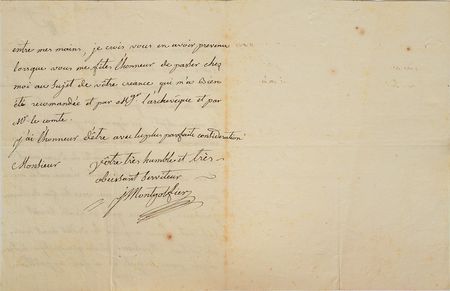 entre mes mains, je crois vous en avoir prevenu
lorsque vous me fites l'honneur de passer chez
moi au sujet de vôtre creance qui m'a bien
été recomandée et par Mgr l'archevêque et par
Mr le comte.
j'ai l'honneur d'être avec la plus parfaite consideration
Monsieur
Vôtre très humble et très
obeissant serviteur
J Montgolfier